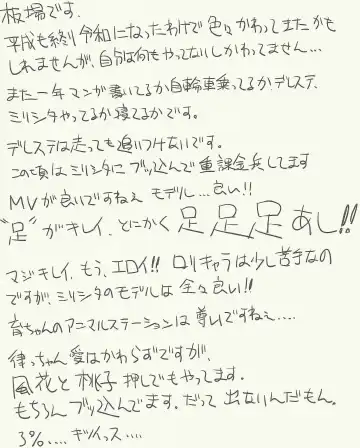 板場です。
平成も終り令和になったわけで色々かわってまたかも
しれませんが、自分は何もやってないしかわってません…
また一年マンガ書いてるか自輪車乗ってるかデレステ、
ミリシタやってるか寝てるかです。
デレステは走っても追いつけないです。
この頃はミリシタにブッ込んで重課金兵してます
MVが良いですねぇ モデル…良い!!
"足"がキレイ、とにかく足足足あし!!
マジキレイ、もう、エロイ!! ロリキャラは少し苦手なの
ですが、ミリシタのモデルは全々良い!!
育ちゃんのアニマルステーションは尊いですねぇ….
律っちゃん愛はかわらずですが、
風花と桃子押しでもやってます。
もちろんブッ込んでます。だって出ないんだもん。
3%…. ギイッス….